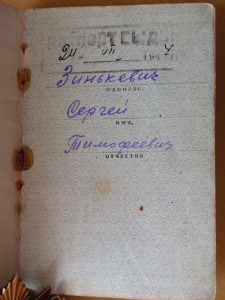 24 VII
Зинькевич
фамилия
Сергей
имя
Тимофеевич
отчество